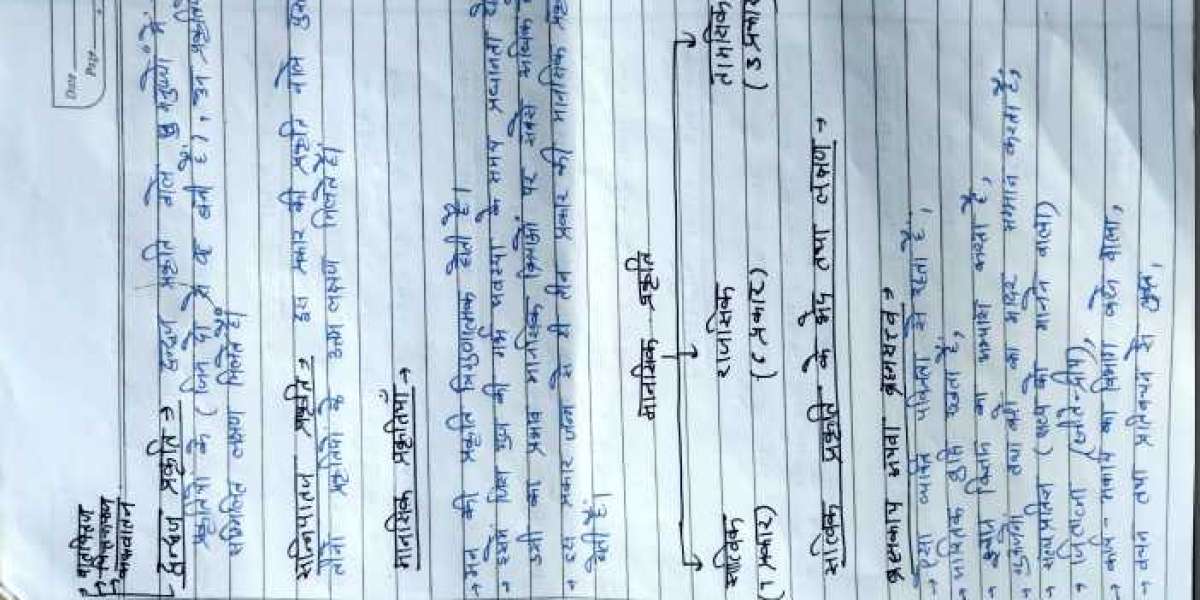 Date
Page
वातपित्तज
पित्तकफज
कफवातज
द्वन्द्वज प्रकृति → द्वन्द्वज प्रकृति वाले मनुष्यों में
प्रकृतियों के (जिन दो से वह बनी है)
सम्मिलित लक्षण मिलते हैं।
सन्निपातज प्रकृति → इस प्रकार की प्रकृति वाले
तीनों प्रकृतियों के सभी लक्षण मिलते हैं।
मानसिक प्रकृतियाँ →
→ मन की प्रकृति त्रिगुणात्मक होती है।
→ इसमें जिस गुण की गर्भ अवस्था के समय प्रधानता
उसी का प्रभाव मानसिक पर सबसे अधिक
→ इस प्रकार से ही तीन प्रकार की मानसिक
होती हैं।
मानसिक प्रकृति
सात्विक राजसिक तामसिक
(7 प्रकार) (6 प्रकार) (3 प्रकार
सात्विक प्रकृति के भेद तथा लक्षण →
ब्रह्मकाय अथवा ब्रह्मसत्व →
→ ऐसा व्यक्ति पवित्रता से रहता है,
→ धार्मिक वृत्ति रखता है,
→ ईश्वर चिंतन का अभ्यास करता है,
→ गुरुजनों तथा बड़ों का आदर सम्मान करता है,
→ सत्यप्रतिज्ञ (सत्य को मानने वाला)
→ जितात्मा
→ कार्य-अकार्य का विभाग करने वाला,
→ वचन तथा प्रतिवचन से युक्त,